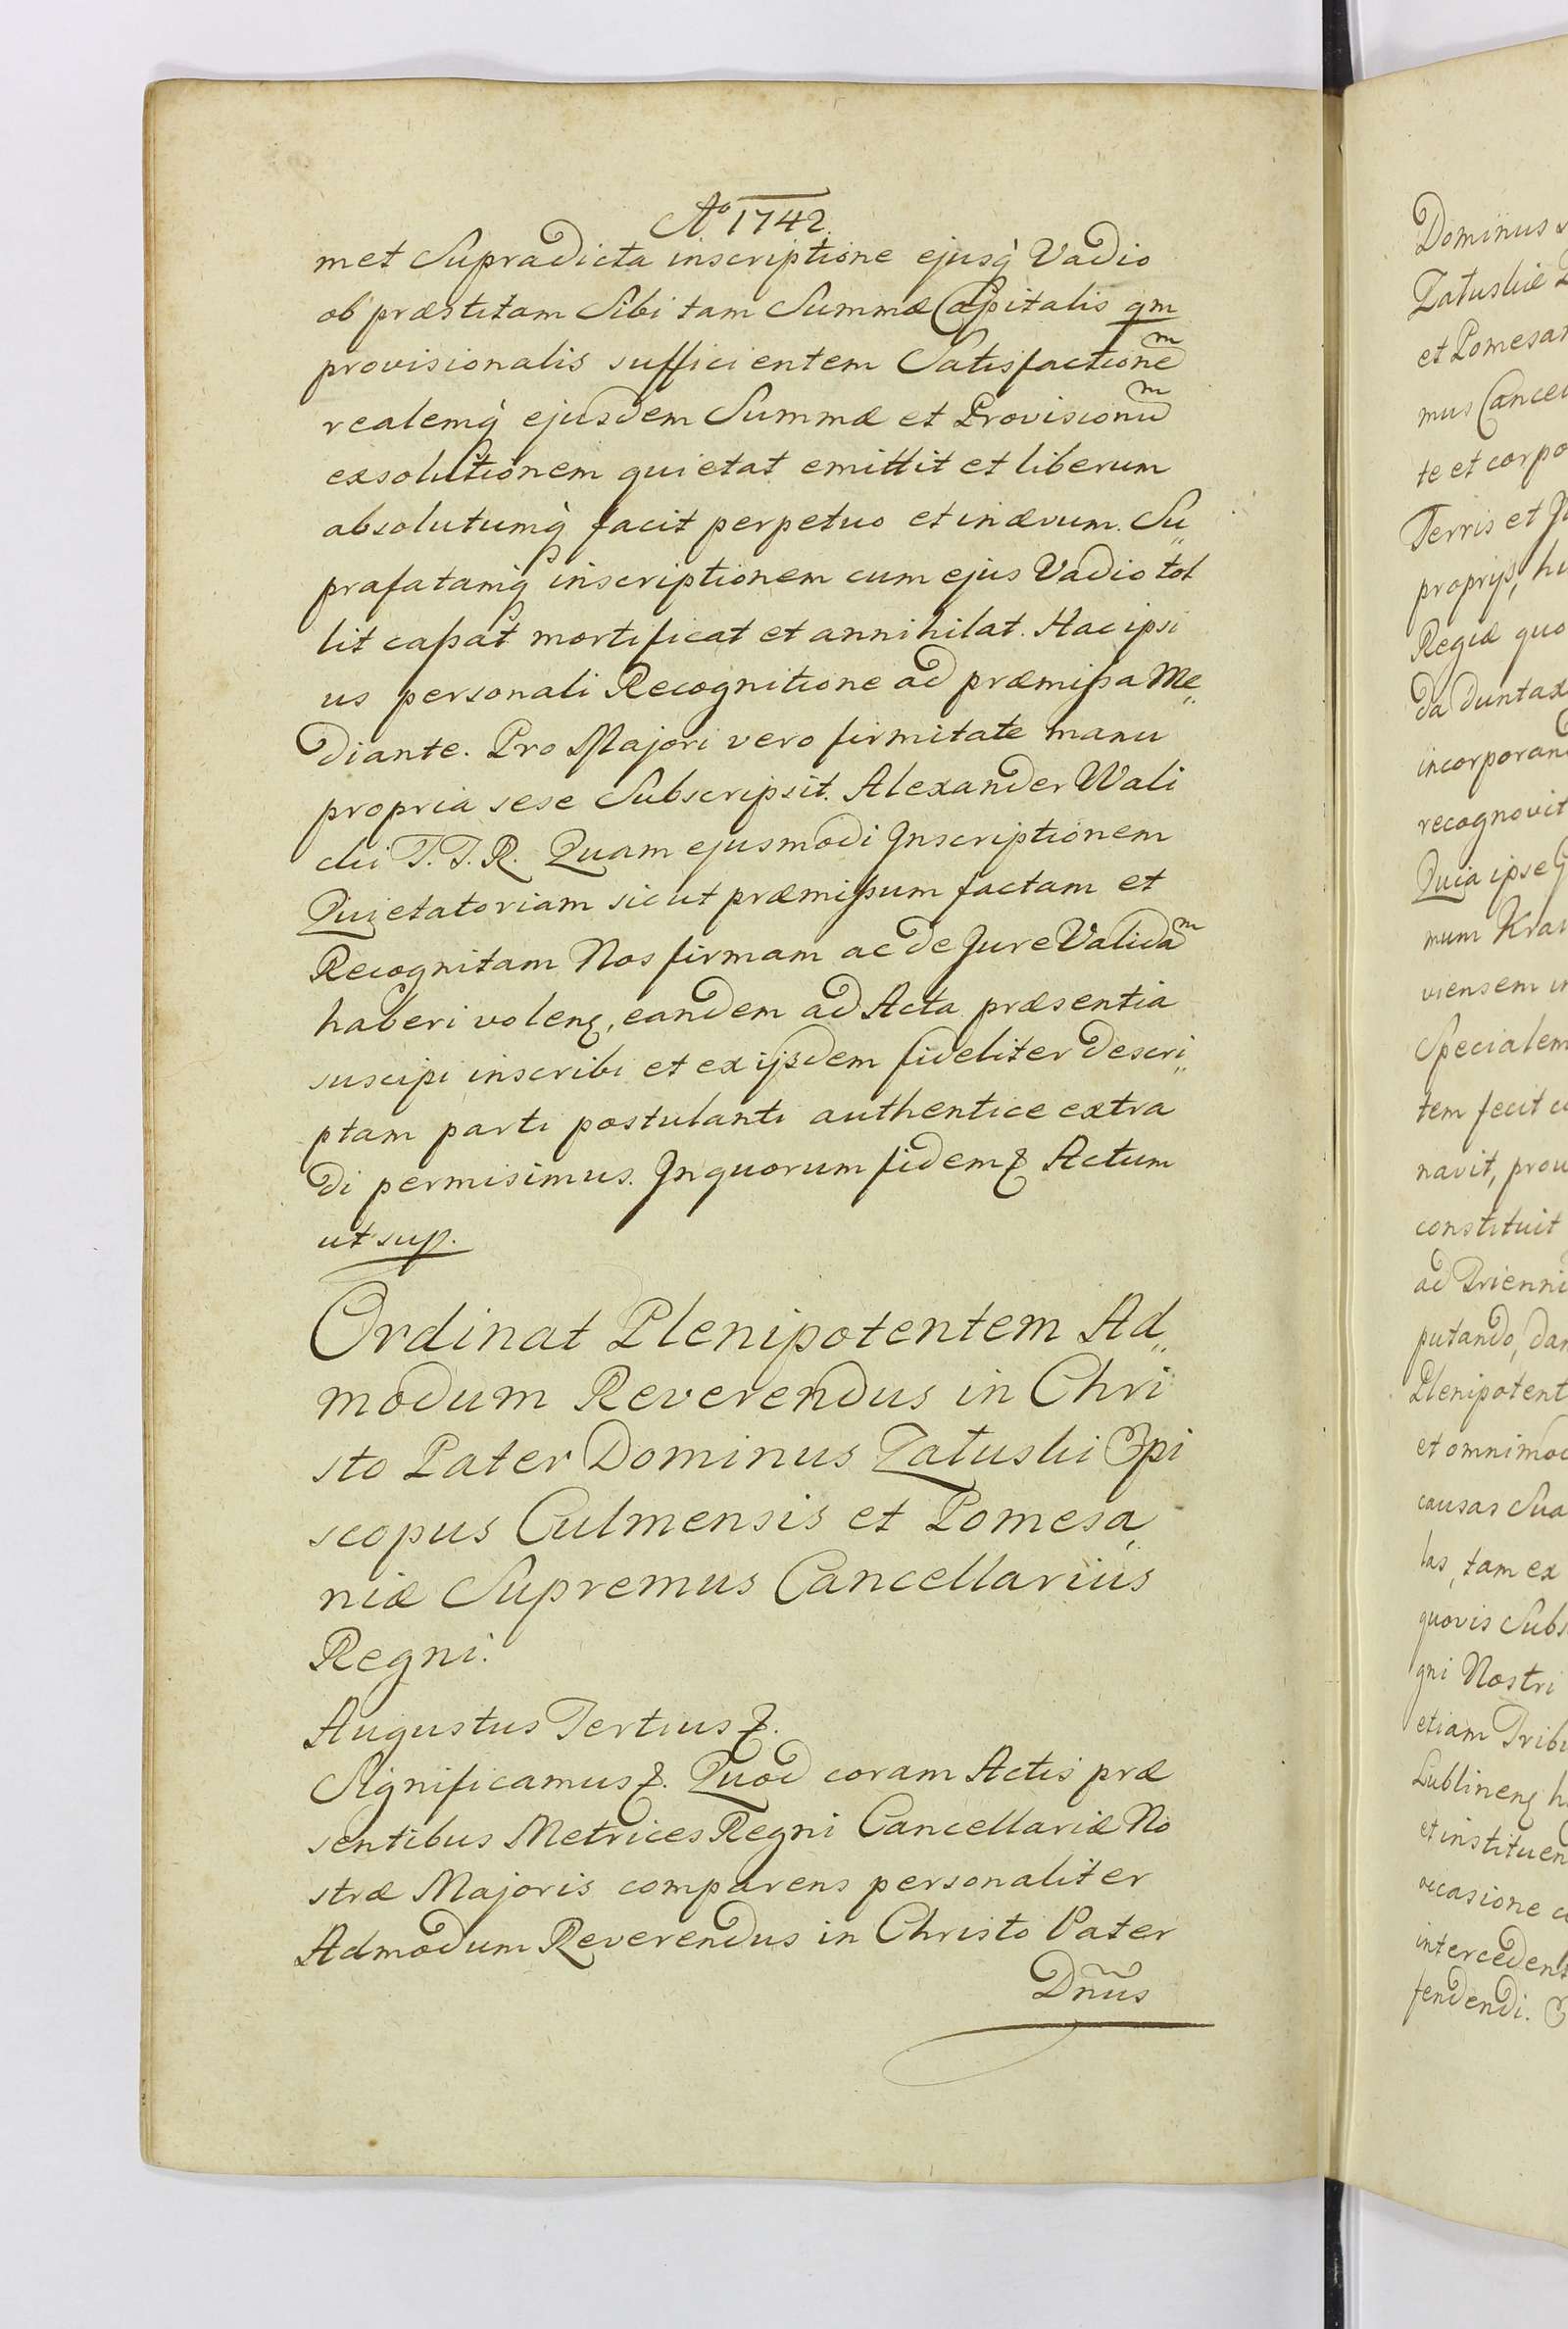 Aº 1742.
met Supradicta inscriptione ejusq̀ Vadio
ob præstitam Sibi tam Summæ Capitalis qm
provisionalis sufficientem Satisfactionem
realemq̀ ejusdem Summæ et Provisionum
exsolutionem quietat emittit et liberum
absolutumq̀ facit perpetuo et inævum. Su„
prafatamq̀ inscriptionem cum ejus Vadio tol
lit cassat mortificat et annihilat. Hac ipsi
us personali Recognitione ad præmissa Me„
diante. Pro Majori vero firmitate manu
propria sese Subscripsit. Alexander Wali
cki T. T. R. Quam ejusmodi Inscriptionem
Quietatoriam sicut præmissum factam et
Recognitam Nos firmam ac de Jure Validam
haberi volenȩ, eandem ad Acta præsentia
suscipi inscribi et ex ijsdem fideliter descri„
ptam parti postulanti authentice extra
di permisimus. Inquorum fidem ꝛ Actum
ut sup.
Ordinat Plenipotentem Ad„
modum Reverendus in Chri
sto Pater Dominus Załuski Epi
scopus Culmensis et Pomesa„
niæ Supremus Cancellarius
Regni.
Augustus Tertius ꝛ.
Significamus ꝛ. Quod coram Actis præ
sentibus Metrices Regni Cancellariæ No
stræ Majoris comparens personaliter
Admodum Reverendus in Christo Pater
Dn̄us
Dominus
Załuskie
et Pomesan
mus Cancel
te et corpo
Terris et
proprijs, hu
Regiæ quo
da duntax
incorporan
recognovit
Quia ipse
mum Kra
viensem in
Specialem
tem fecit
navit, prou
constituit
ad Trienni
putando, dan
Plenipotent
et omnimod
causas Sua
las, tam ex
quovis Subs
gni Nostri
etiam Tribu
Lublinenȩ h
et instituen
occasione
intercedent
fendendi.